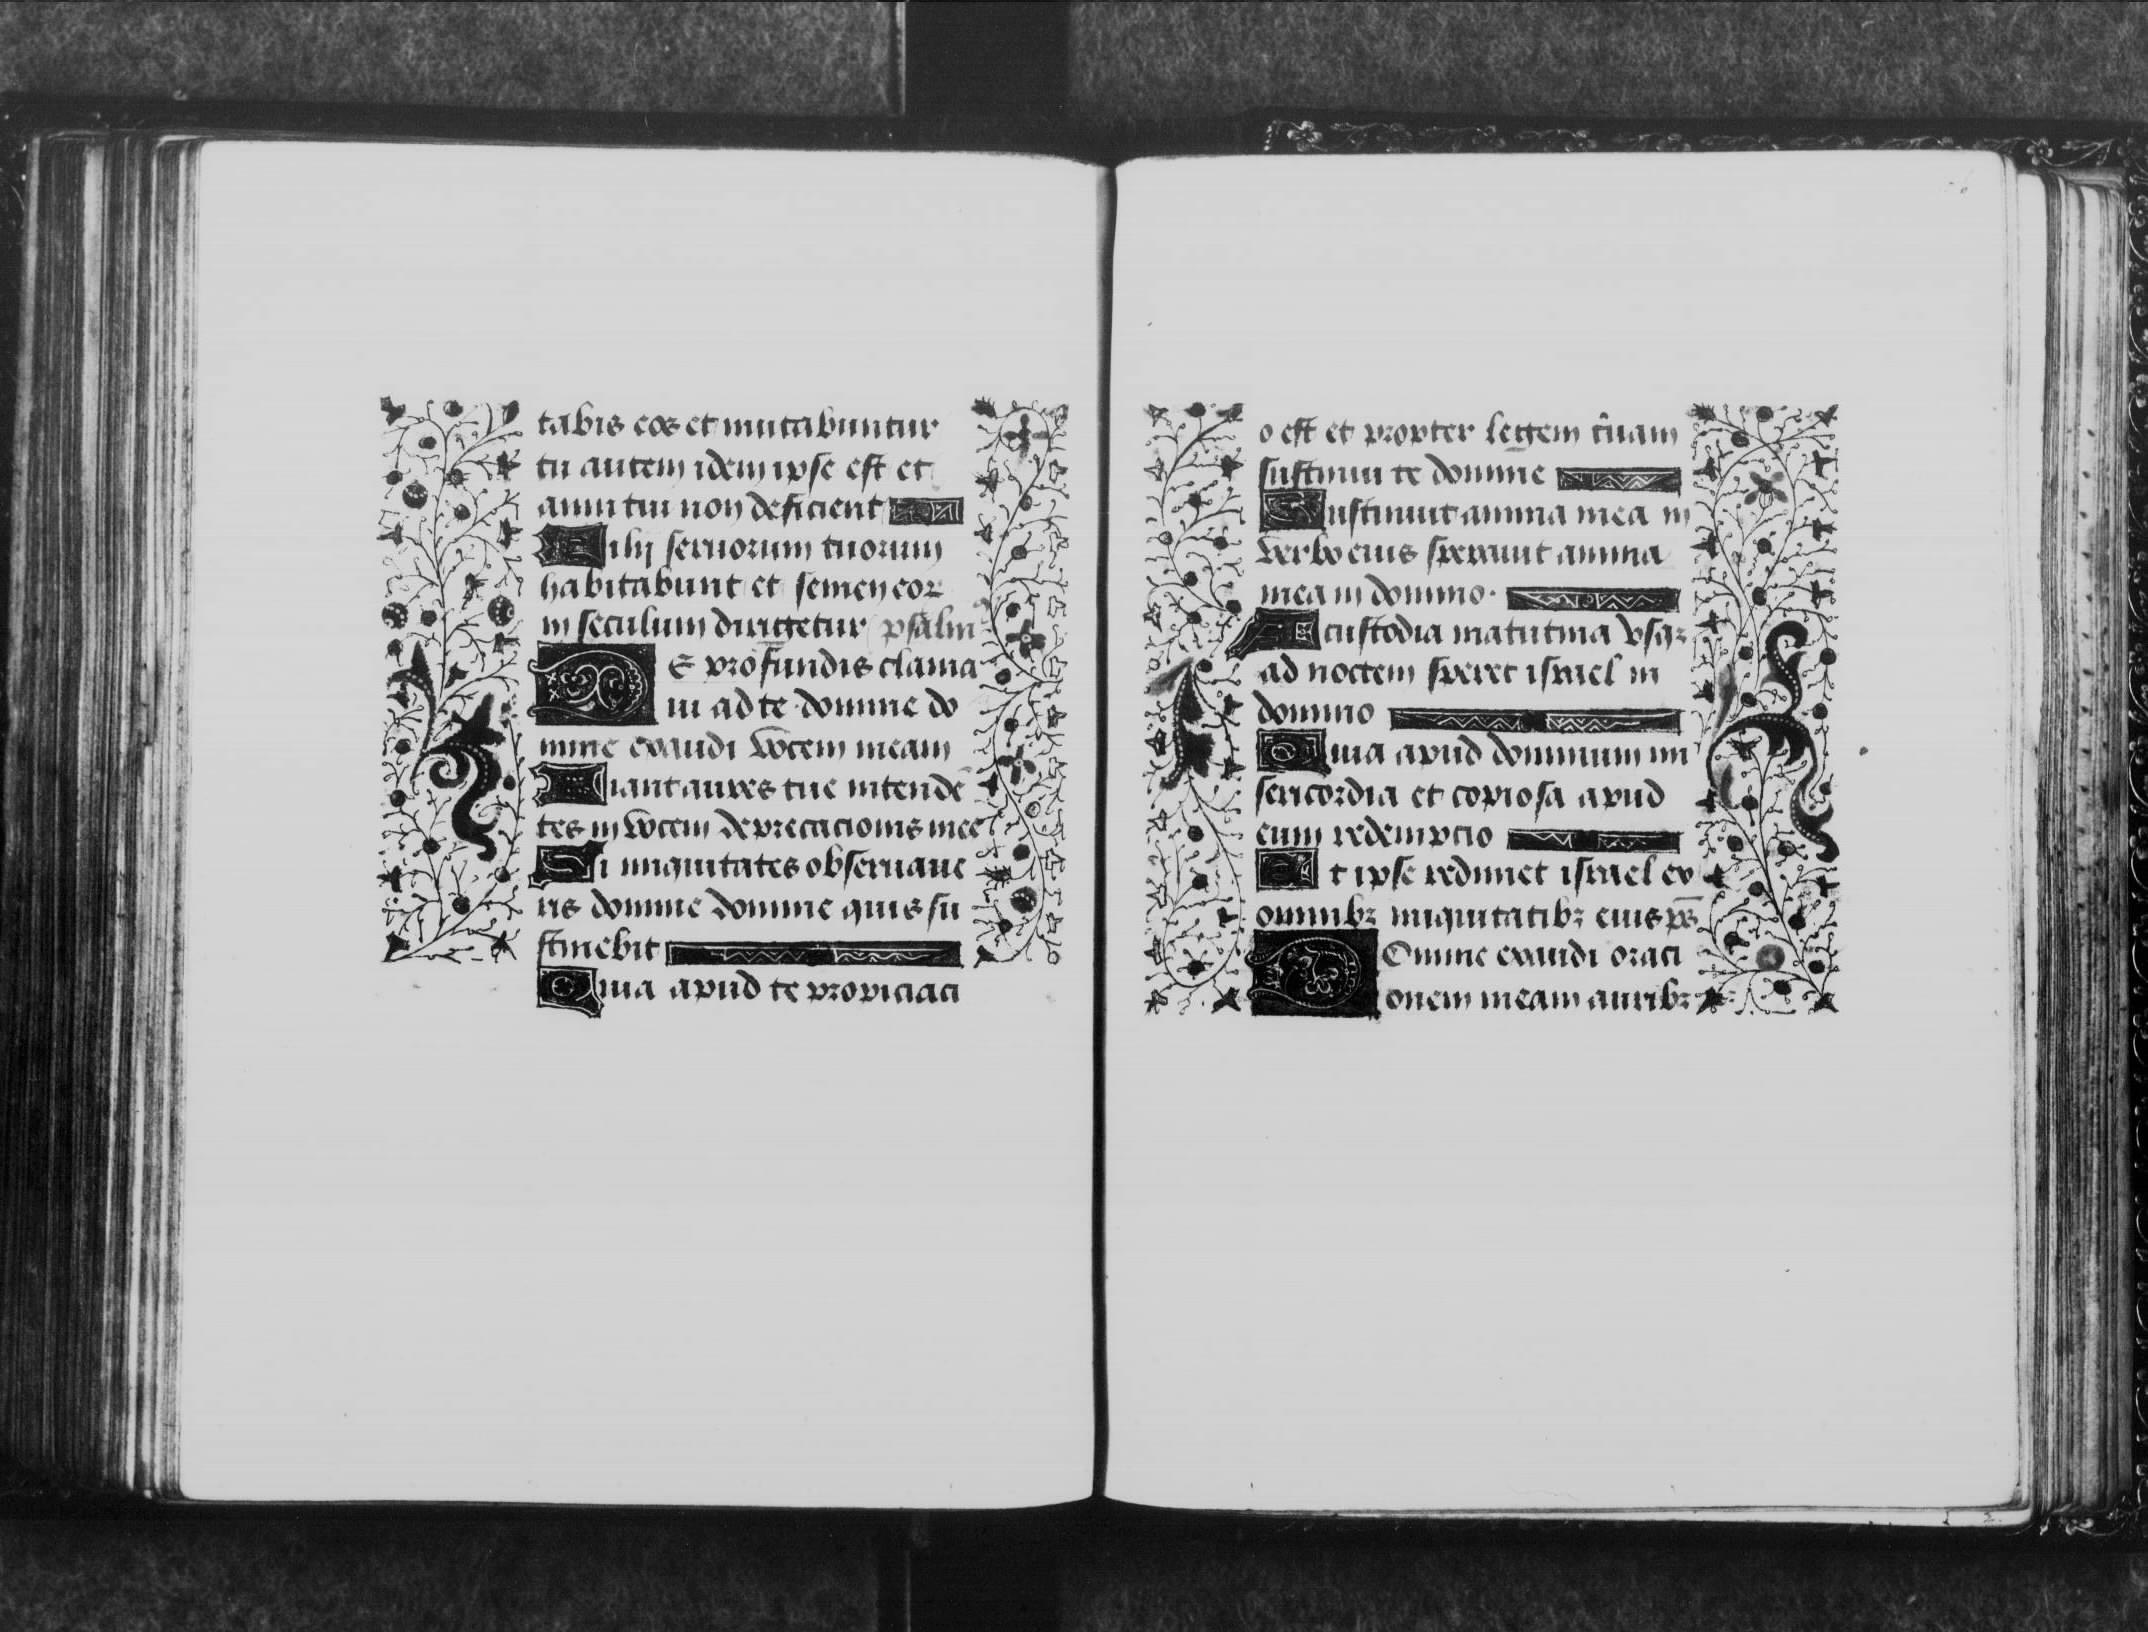 tabis eos et mutabuntur
tu autem idem ipse est et
anni tui non deficient
Filij seruorum tuorum
habitabunt et semen eorꝝ
in seculum dirigetur psalmꝰ
DE profundis clama
ui ad te domine do
mine exaudi vocem meam
Fiant aures tue intendē
tes in vocem deprecacionis mee
Si iniquitates obseruaue
ris domine domine quis su
stinebit
Quia apud te propiciaci
o est et propter legem tuam
sustinui te domine
Sustinuit anima mea in
verbo eius sperauit anima
mea in domino·
A custodia matutina vsqꝫ
ad noctem speret israel in
domino
Quia apud dominum mi
sericordia et copiosa apud
eum redempcio
Et ipse redimet israel ex
omnibꝫ iniquitatibꝫ eius pꝰ
DOmine exaudi oraci
onem meam auribꝫ